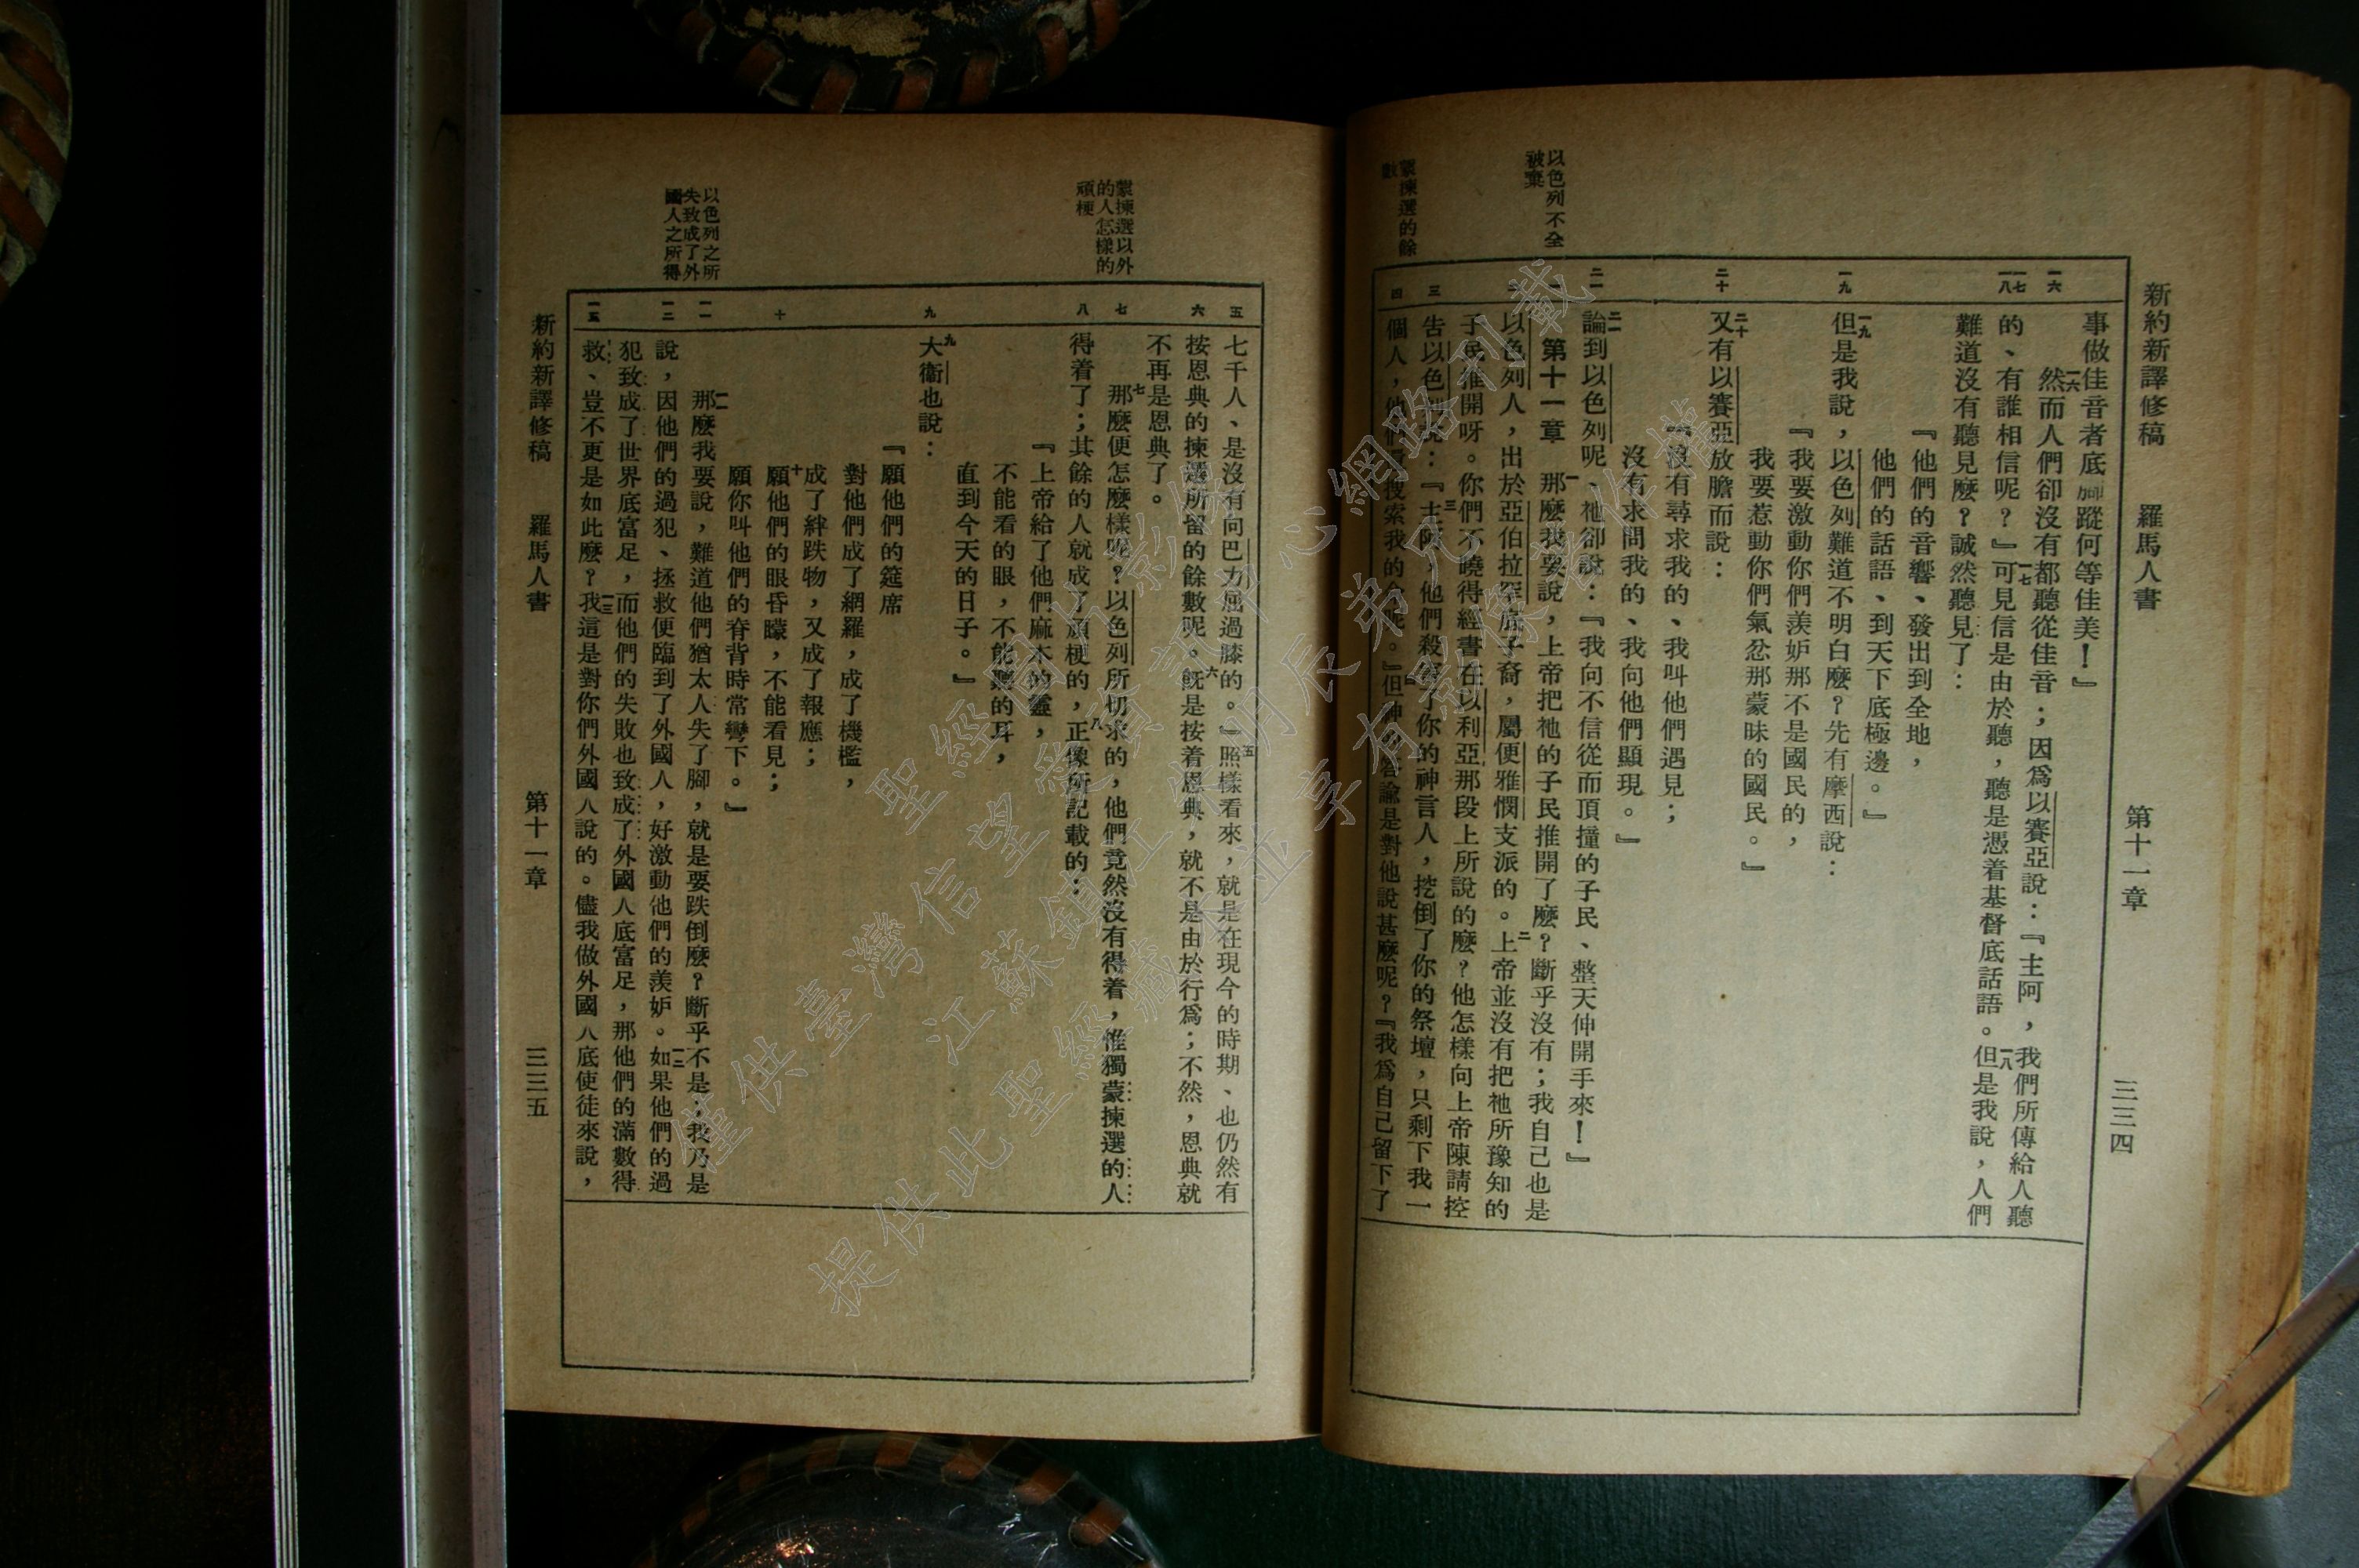 新約新譯修稿　羅馬人書　第十一章　三三四
以色列不全
被棄
蒙揀選的餘
數
一六
一七
一八
一九
二十
二一
一
二
三
四
事做佳音者底腳蹤何等佳美！』
一六然而人們卻沒有都聽從佳音；因爲以賽亞說：『主阿，我們所傳給人聽
的、有誰相信呢？』一七可見信是由於聽，聽是憑着基督底話語。一八但是我說，人們
難道沒有聽見麼？誠然聽見了：
『他們的音響、發出到全地，
他們的話語、到天下底極邊。』
一九但是我說，以色列難道不明白麼？先有摩西說：
『我要激動你們羨妒那不是國民的，
我要惹動你們氣忿那蒙昧的國民。』
二十又有以賽亞放膽而說：
『沒有尋求我的、我叫他們遇見；
沒有求問我的、我向他們顯現。』
二一論到以色列呢、祂卻說：『我向不信從而頂撞的子民、整天伸開手來！』
第十一章　一那麼我要說，上帝把祂的子民推開了麼？斷乎沒有；我自己也是
以色列人，出於亞伯拉罕底子裔，屬便雅憫支派的。二上帝並沒有把祂所豫知的
子民推開呀。你們不曉得經書在以利亞那段上所說的麼？他怎樣向上帝陳請控
告以色列說：三『主阿，他們殺害了你的神言人，挖倒了你的祭壇，只剩下我一
個人，他們還搜索我的命呢。』四但神的答諭是對他說甚麼呢？『我爲自己留下了
蒙揀選以外
的人怎樣的
頑梗
以色列之所
失致成了外
國人之所得
五
六
七
八
九
十
一一
一二
一三
七千人、是沒有向巴力屈過膝的。』五照樣看來，就是在現今的時期、也仍然有
按恩典的揀選所留的餘數呢。六旣是按着恩典，就不是由於行爲；不然，恩典就
不再是恩典了。
七那麼便怎麼樣呢？以色列所切求的，他們竟然沒有得着，惟獨蒙揀選的人
得着了；其餘的人就成了頑梗的，八正像所記載的：
『上帝給了他們麻木的靈，
不能看的眼，不能聽的耳，
直到今天的日子。』
九大衞也說：
『願他們的筵席
對他們成了網羅，成了機檻，
成了絆跌物，又成了報應；
十願他們的眼昏矇，不能看見；
願你叫他們的脊背時常彎下。』
一一那麼我要說，難道他們猶太人失了腳，就是要跌倒麼？斷乎不是；我乃是
說，因他們的過犯、拯救便臨到了外國人，好激動他們的羨妒。一二如果他們的過
犯致成了世界底富足，而他們的失敗也致成了外國人底富足，那他們的滿數得
救、豈不更是如此麼？一三我這是對你們外國人說的。儘我做外國人底使徒來說，
新約新譯修稿　羅馬人書　第十一章　三三五
僅供臺灣信望愛資訊中心網路刊載
江蘇鎮江朱明辰弟兄
提供此聖經藏本並享有影像著作權